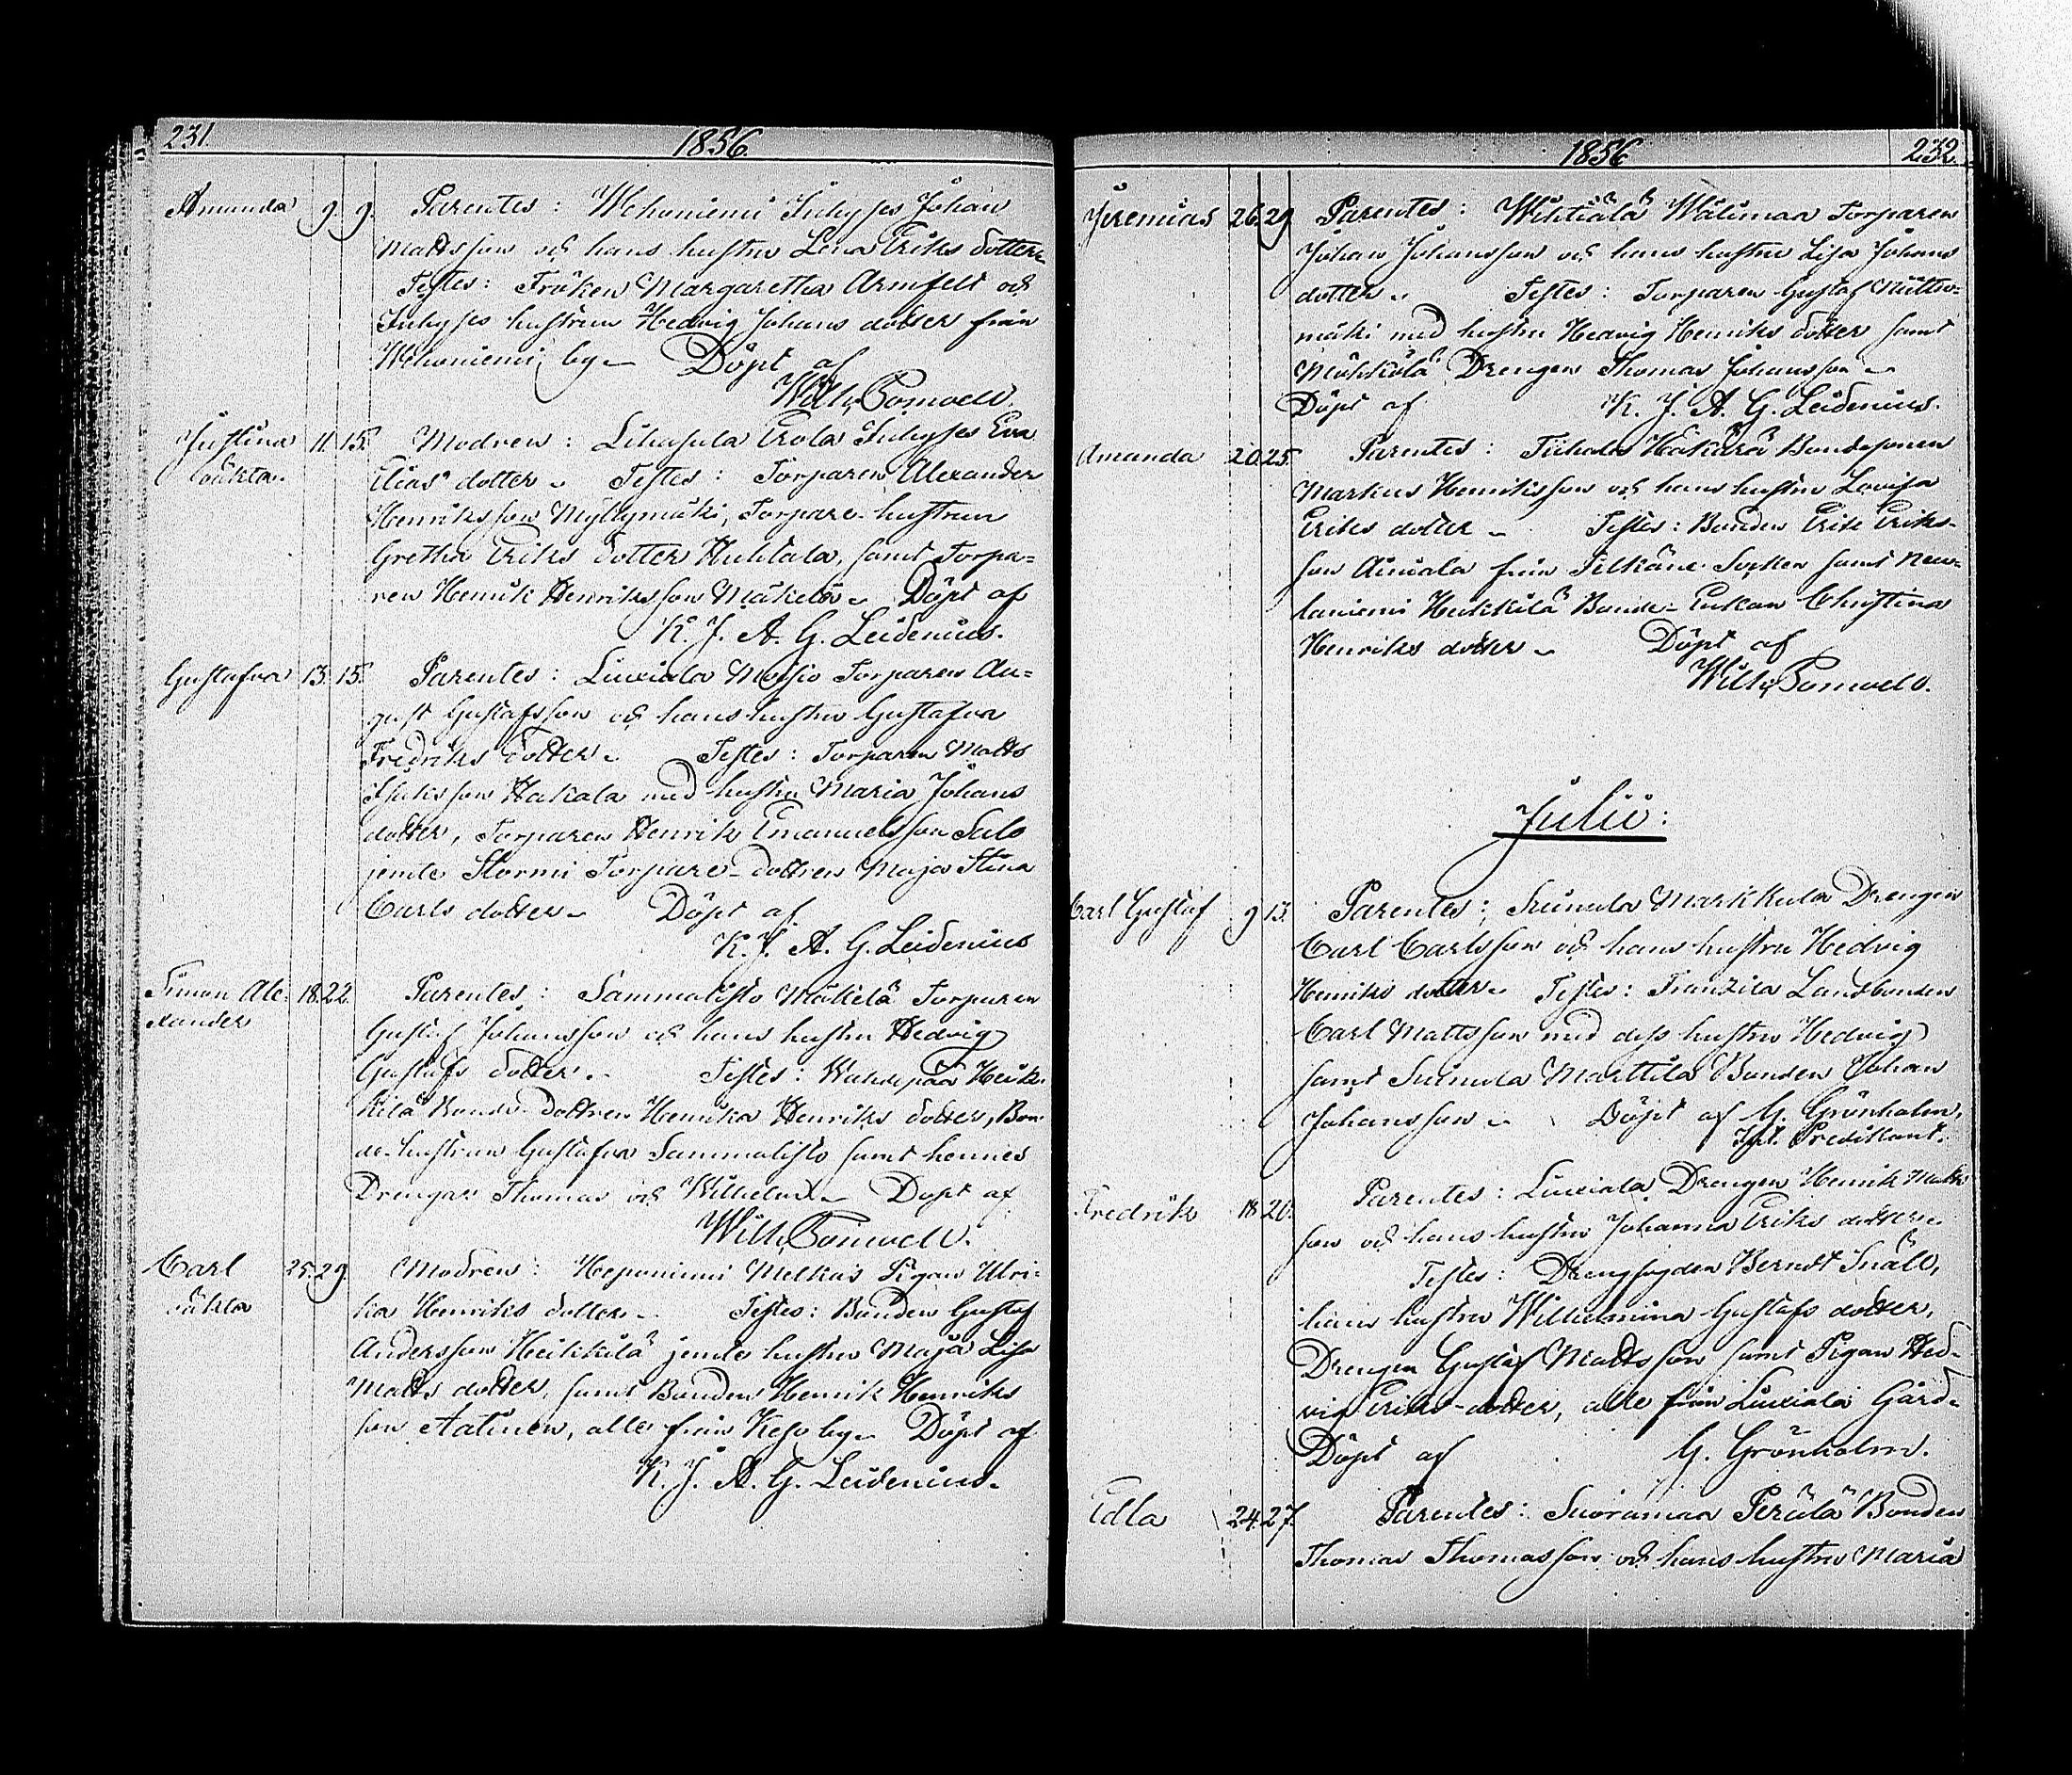 231.
1856.
Amanda 9. 9. Parentes: Wehoniemi Inhyses Johan
Mattsson och hans hustru Lena Eriks dotter.
Testes: Fröken Margaretha Armfelt och
Inhyses hustrun Hedvig Johans dotter från
Wehoniemi by. Döpt af
Wilh. Pomoell.
Justina 11. 15. Modren: Lihasula Erola Inhyses Eva
oäkta. Elias dotter. Testes: Torparen Alexander
Henriksson Myllymäki, Torpare-hustrun
Gretha Eriks dotter Huhtala, samt Torpa-
ren Henrik Henriksson Mäkelä. Döpt af
K. J. A. G. Leidenius.
Gustafva 13. 15. Parentes: Liuxiala Moisio Torparen Au-
gust Gustafsson och hans hustru Gustafva
Fredriks dotter. Testes: Torparen Matts
Isaksson Hakala med hustru Maria Johans
dotter, Torparen Henrik Emanuelsson Salo
jemte Stormi Torpare-dottren Maja Stina
Carls dotter. Döpt af
K. J. A. G. Leidenius
Simon Ale- 18. 22. Parentes: Sammalisto Mäkelä Torparen
xander Gustaf Johansson och hans hustru Hedvig
Gustafs dotter. Testes: Wahdepää Heik-
kilä Bonde-dottren Henrika Henriks dotter, Bon-
de-hustrun Gustafva Sammalisto samt hennes
Drengar Thomas och Wilhelm. Döpt af
Wilh. Pomoell.
Carl 25. 29. Modren: Heponiemi Melkas Pigan Ulri-
oäkta ka Henriks dotter. Testes: Bonden Gustaf
Andersson Heikkilä jemte hustru Maja Lisa
Matts dotter, samt Bonden Henrik Henriks
son Aatinen, alle från Keso by. Döpt af
K. J. A. G. Leidenius.
1856
232.
Jeremias 26. 29. Parentes: Wihtiälä Wälimaa Torparen
Johan Johansson och hans hustru Lisa Johans
dotter. Testes: Torparen Gustaf
mäki med hustru Hedvig Henriks dotter samt
Möhkölä Drengen Thomas Johansson.
Döpt af K. J. A. G. Leidenius.
Amanda 20. 25. Parentes: Tiihala Häkärä Bondesonen
Markus Henriksson och hans hustru Lovisa
Eriks dotter. Testes: Bonden Erik Eriks-
son från Pelkäne Socken samt
Heikkilä Bonde-Enkan Christina
Henriks dotter. Döpt af
Wilh. Pomoell.
Julii:
Carl Gustaf 9 13. Parentes: Suinula Markkula Drengen
Carl Carlsson och hans hustru Hedvig
Henriks dotter. Testes: Franzila Landbonden
Carl Mattsson med dess hustru Hedvig
samt Suinula Marttila Bonden Johan
Johansson. Döpt af G. Grönholm,
Predikant.
Fredrik 18. 20. Parentes: Liuxiala Drengen Henrik Matts
son och hans hustru Johanna Eriks dotter.
Testes: Drengfogden Berndt Snäll,
hans hustru Wilhelmina Gustafs dotter,
Drengen Gustaf Mattsson samt Pigan Hed-
vig Eriks-dotter, alle från Liuxiala Gård.
Döpt af G. Grönholm.
Edla 24. 27. Parentes: Suoramaa Perälä Bonden
Thomas Thomasson och hans hustru Maria